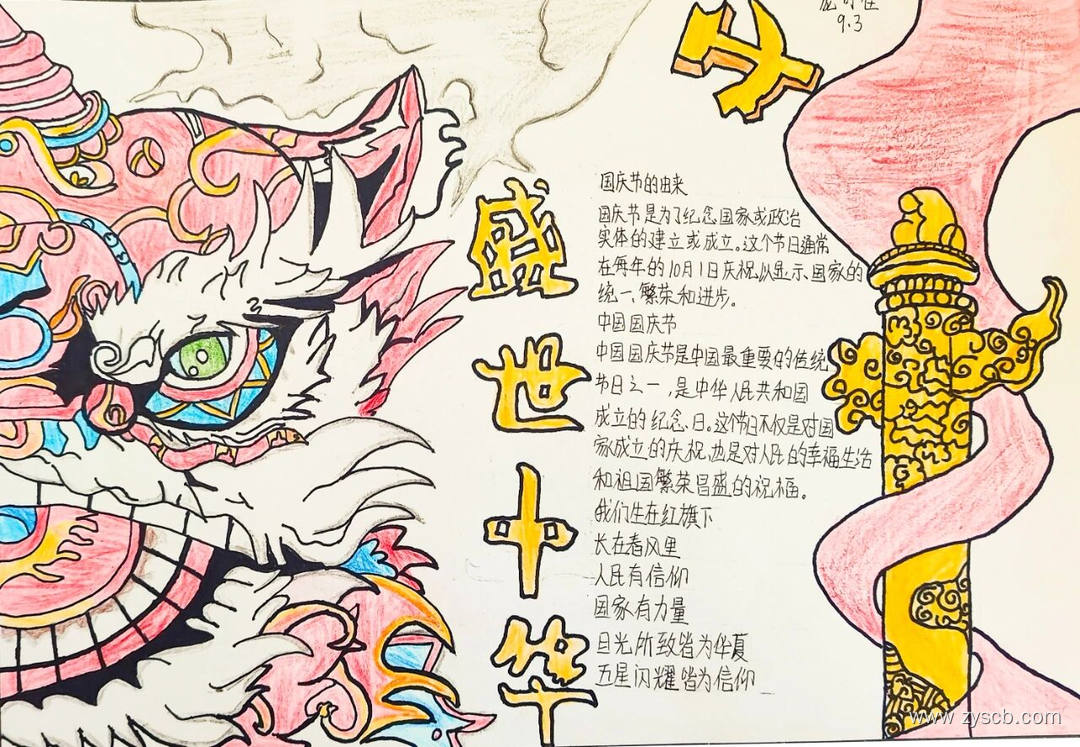 9.3
盛世中华
国庆节的由来
国庆节是为了纪念国家或政治
实体的建立或成立。这个节日通常
在每年的10月1日庆祝,以显示国家的
统一、繁荣和进步。
中国国庆节
中国国庆节是中国最重要的传统
节日之一,是中华人民共和国
成立的纪念日。这个节日不仅是对国
家成立的庆祝,也是对人民的幸福生活
和祖国繁荣昌盛的祝福。
我们生在红旗下
长在春风里
人民有信仰
国家有力量
目光所致皆为华夏
五星闪耀皆为信仰
www.zyscb.com